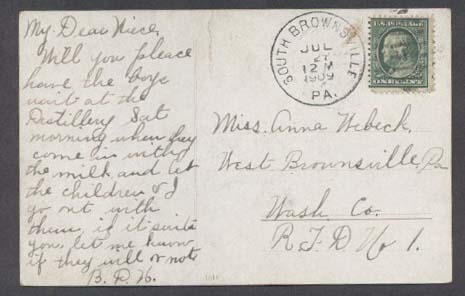 My Dear Niece,
Will you pleace
have the boys
wait at the
Distillery Sat
morning when they
come in with
the milk and let
the children & I
go out with
them, if it suits
you, let me know
if they will or not
B. D. H.
SOUTH BROWNSVILLE
JUL
27
12 M
1909
PA.
Miss. Anna Hebeck,
West Brownsville, Pa
Wash Co.
R. F. D No 1.